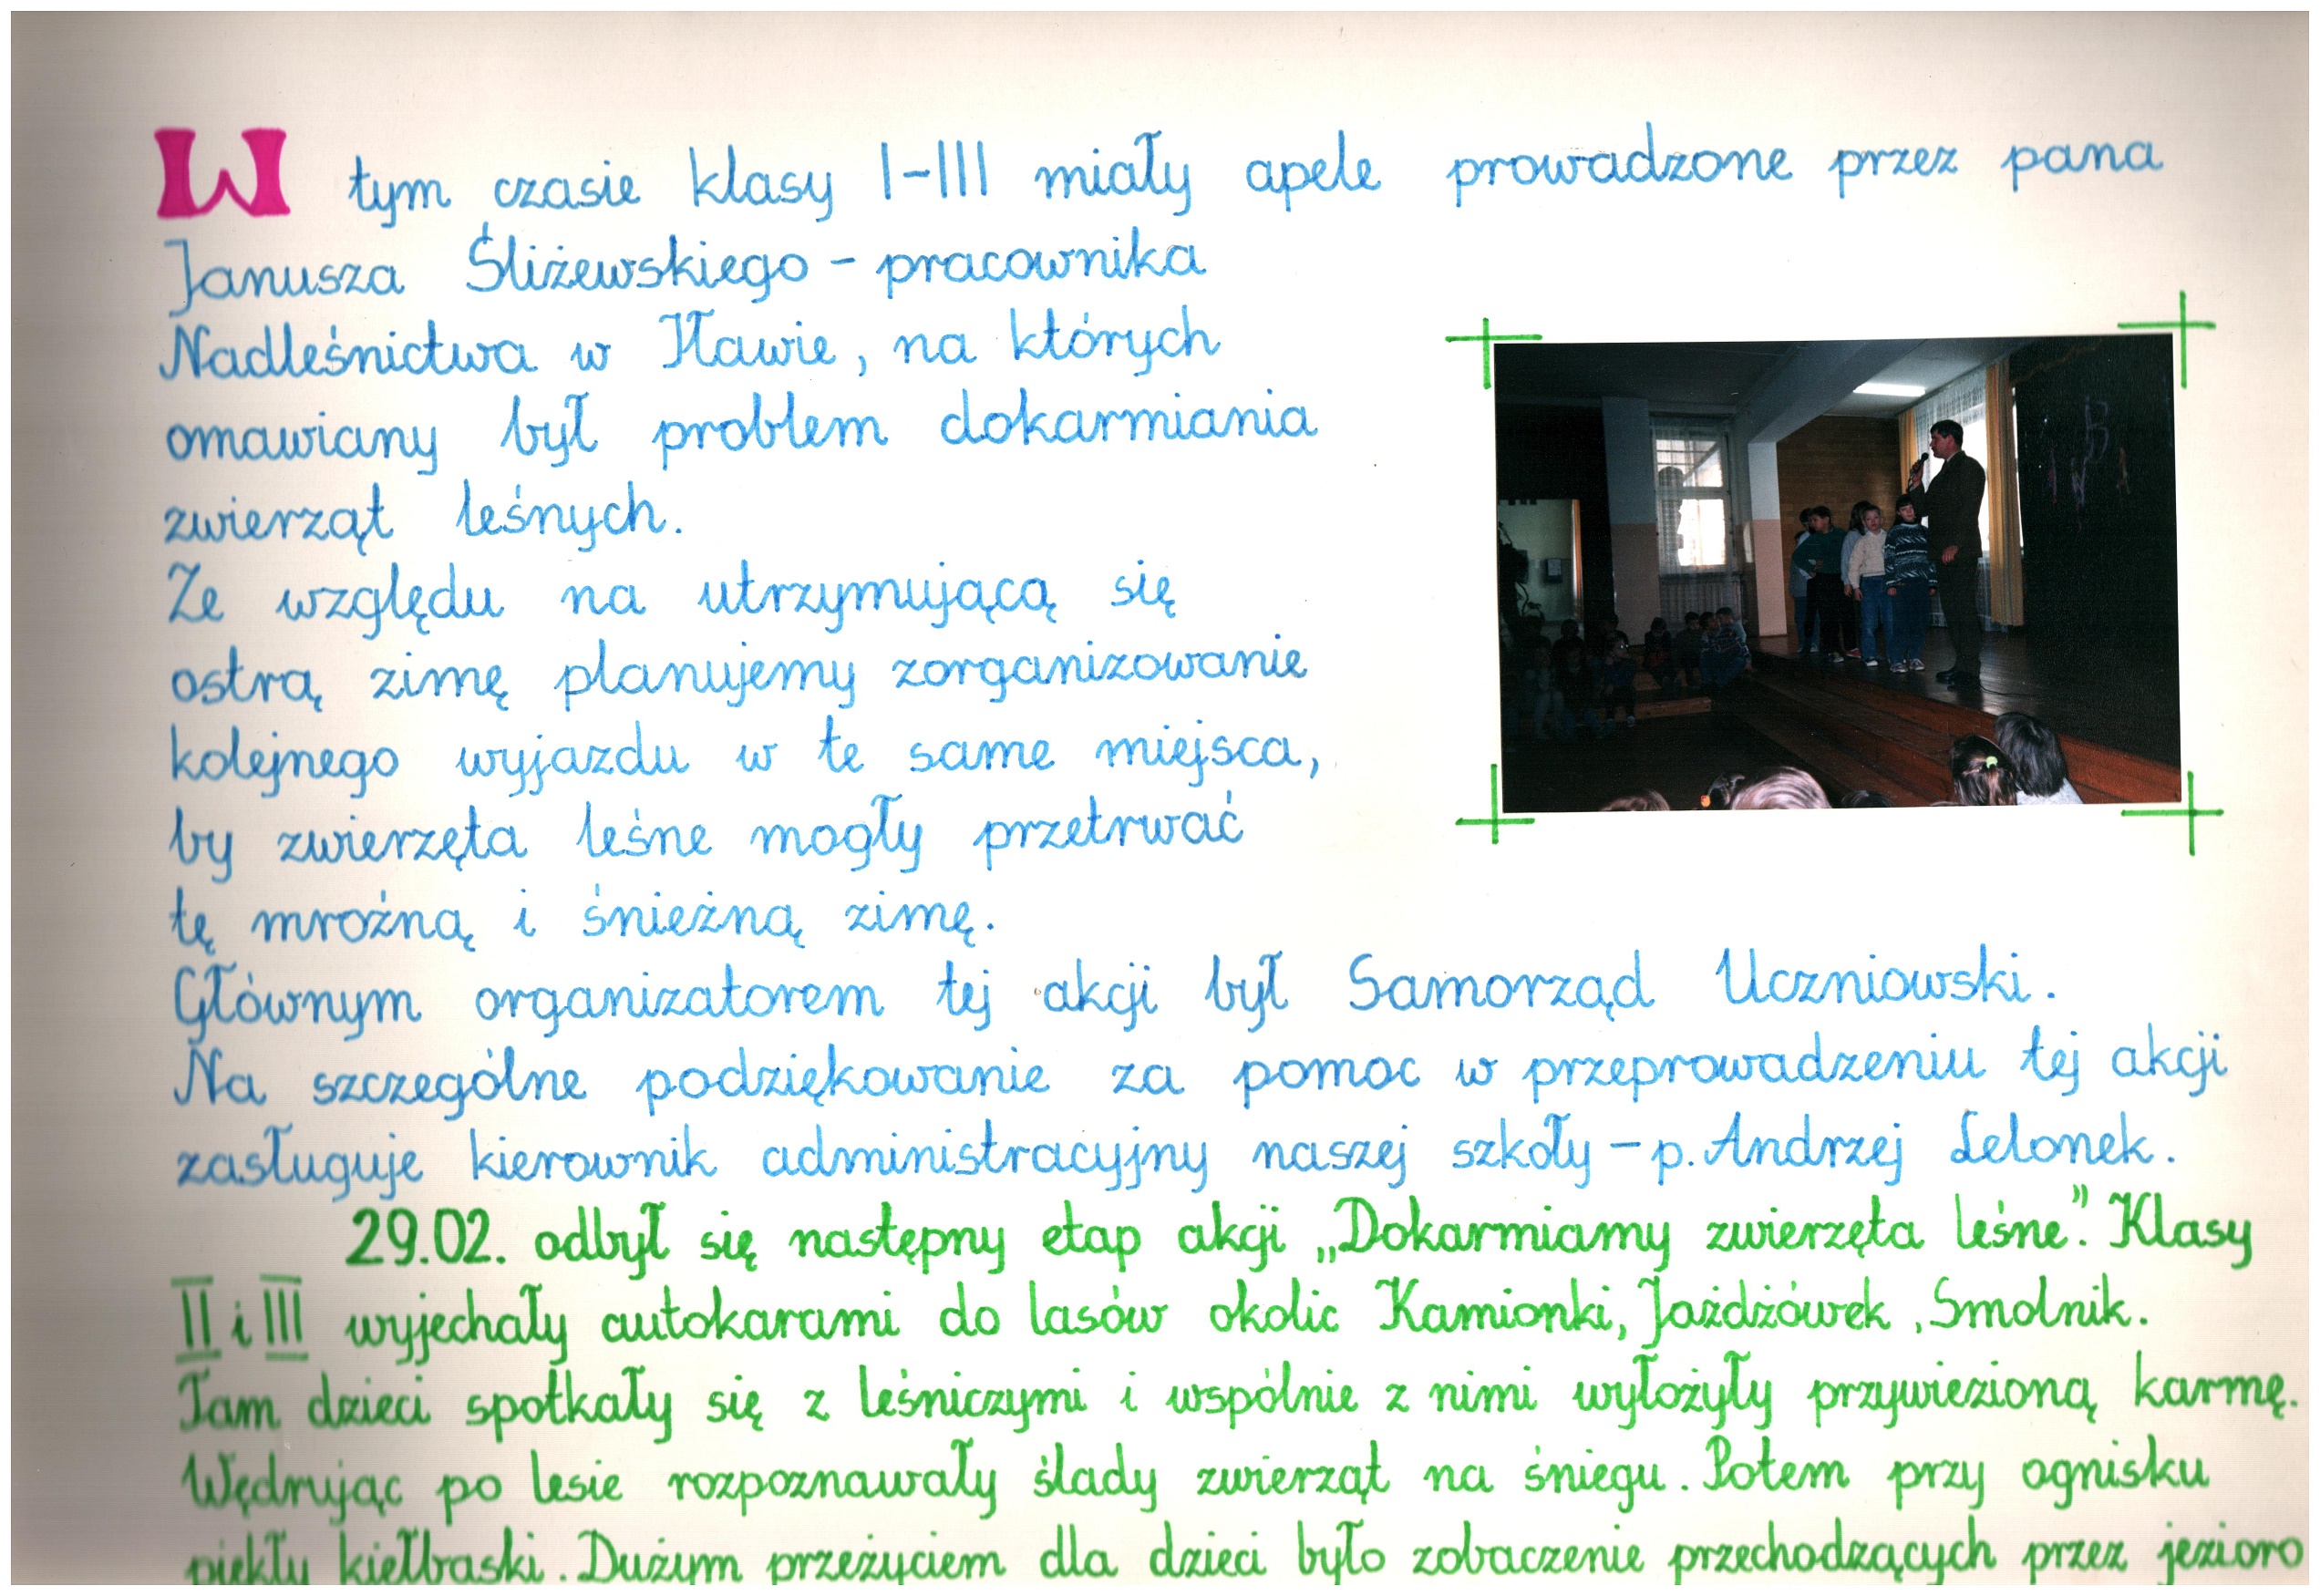 W tym czasie klasy I-III miały apele prowadzone przez pana
Janusza Śliżewskiego - pracownika
Nadleśnictwa w Iławie, na których
omawiany był problem dokarmiania
zwierząt leśnych.
Ze względu na utrzymującą się
ostrą zimę planujemy zorganizowanie
kolejnego wyjazdu w te same miejsca,
by zwierzęta leśne mogły przetrwać
tę mroźną i śnieżną zimę.
Głównym organizatorem tej akcji był Samorząd Uczniowski.
Na szczególne podziękowanie za pomoc w przeprowadzeniu tej akcji
zasługuje kierownik administracyjny naszej szkoły - p. Andrzej Lelonek.
29.02. odbył się następny etap akcji „Dokarmiamy zwierzęta leśne”. Klasy
II i III wyjechały autokarami do lasów okolic Kamionki, Jażdżówek, Smolnik.
Tam dzieci spotkały się z leśniczymi i wspólnie z nimi wyłożyły przywiezioną karmę.
Wędrując po lesie rozpoznawały ślady zwierząt na śniegu. Potem przy ognisku
piekły kiełbaski. Dużym przeżyciem dla dzieci było zobaczenie przechodzących przez jezioro